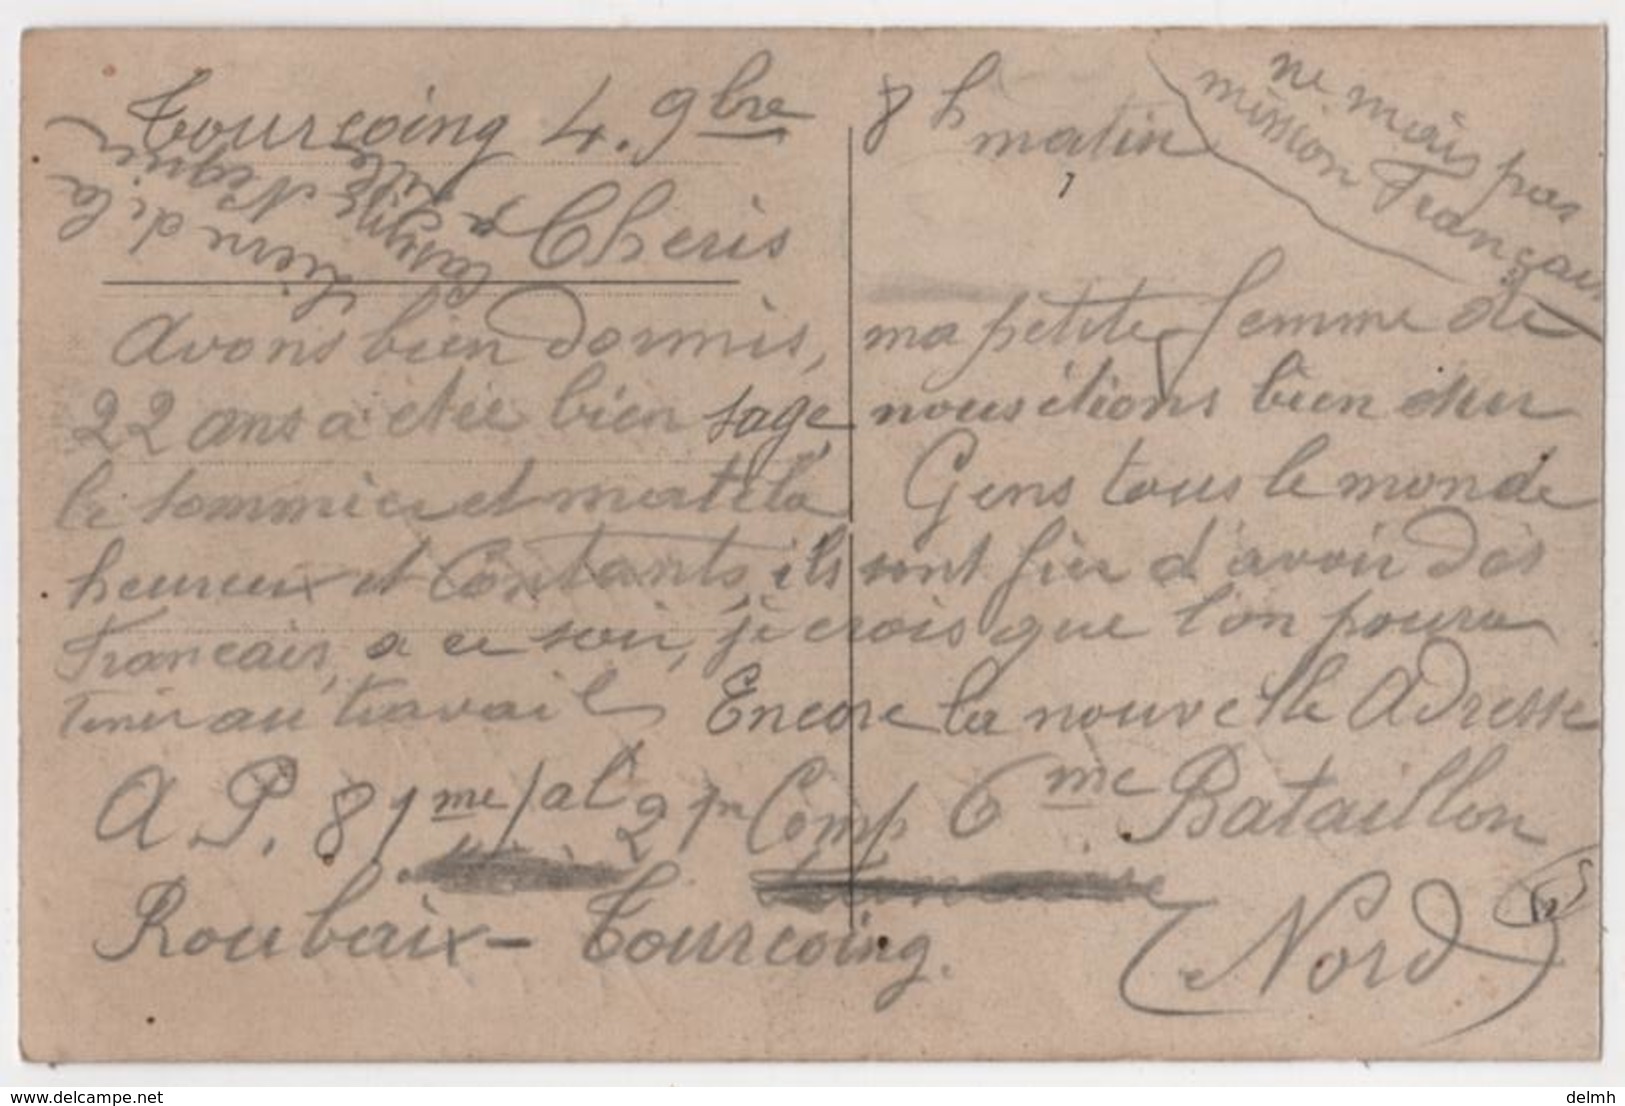 Tourcoing 4. 9bre 8 h matin
ne mais pas
mission Français
Cheris
de la
Avons bien dormis, ma petite femme de
22 ans a etée bien sage, nous étions bien sur
le sommier et matela Gens tous le monde
heureux et Contants, ils sont fier d'avoir des
Francais, a ce soir, je crois que l'on poura
tenir au travail Encore la nouvelle Adresse
A P. 81me 21me Comp 6me Bataillon
Roubaix - Tourcoing. (Nord)
delmh.net
delmh